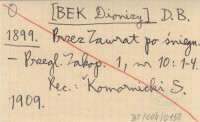 [BEK Dionizy] D.B.
1899. Przez Zawrat po śniegu.
- Przegl. Zakop. 1, nr 10: 1-4.
Rec.: Komornicki S.
1909.